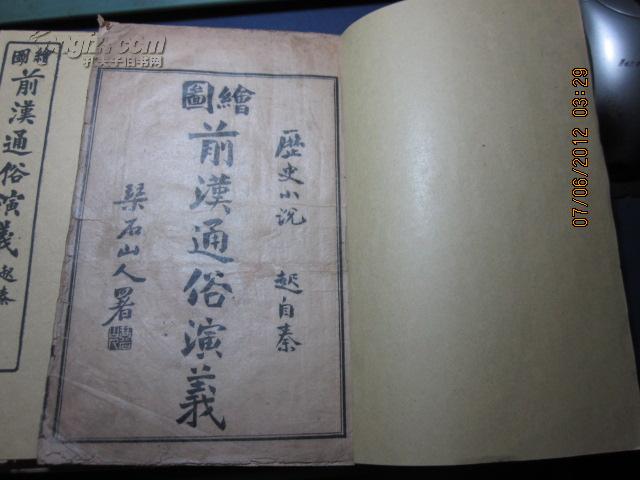 歷史小说 起自秦
繪圖
前漢通俗演義
琹石山人署
繪圖
前漢通俗演義 起秦
孔夫子旧书网
07/06/2012 03:29